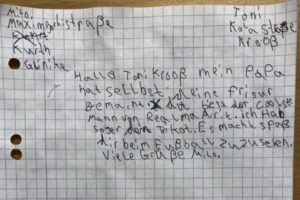 Mito.
Maximgorkistraße
Kurth
Glinike
Toni
Kroos
Hallo Toni Krooß mein Papa
hat selbst deine frisur
gemacht. X du bist der coolste
Mann von Realmadrit. ich Hab
sogar dein Trikot. Es macht spaß
dir beim Fußball zuzusehen.
Viele Grüße Mito.